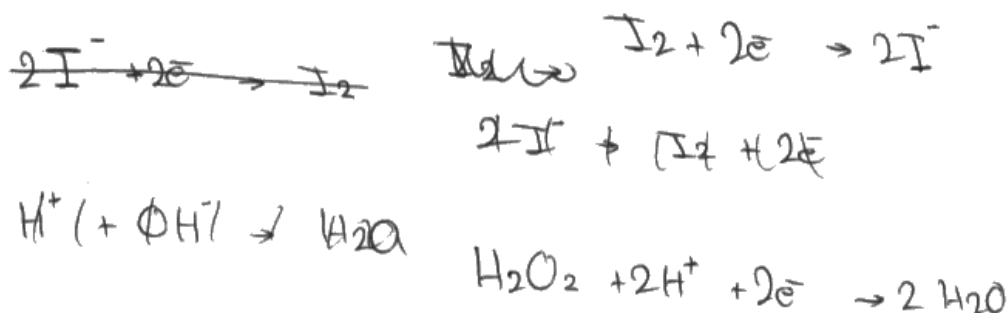 2I⁻ + 2e⁻ → I2
I2 + 2e⁻ → 2I⁻
2I⁻ → I2 + 2e⁻
H⁺ + OH⁻ → H2O
H2O2 + 2H⁺ + 2e⁻ → 2 H2O